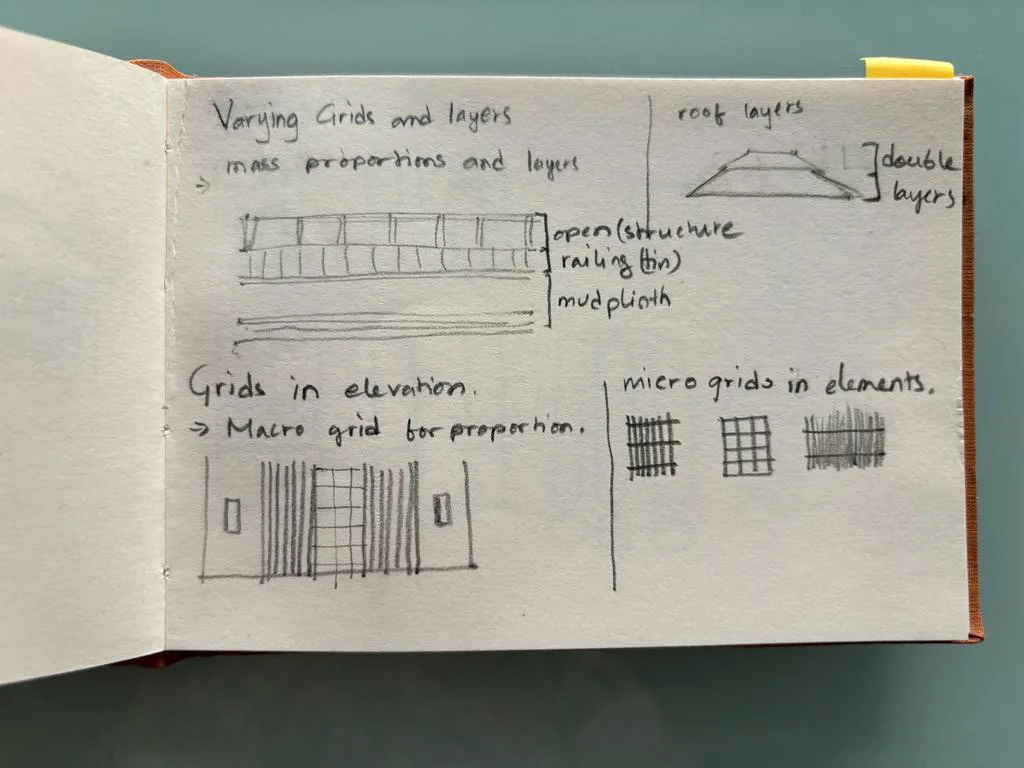 Varying Grids and layers
mass proportions and layers
→
roof layers
double
layers
open (structure
railing (tin)
mud plinth
Grids in elevation.
→ Macro grid for proportion.
micro grids in elements.